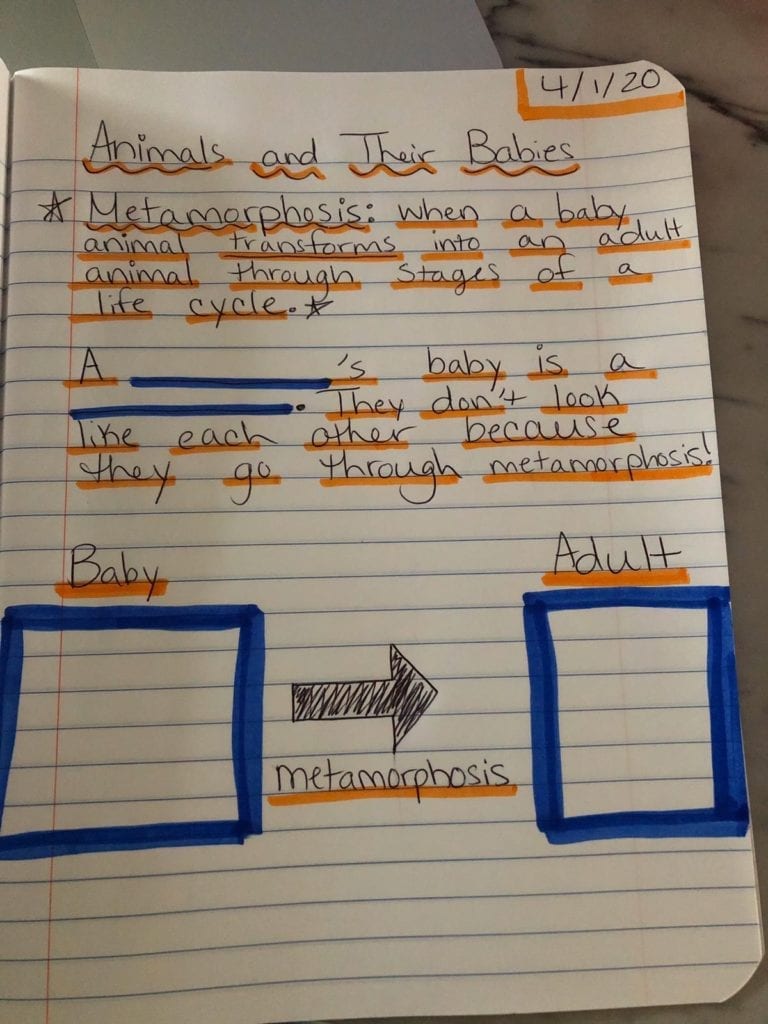 4/1/20
Animals and Their Babies
☆ Metamorphosis: when a baby
animal transforms into an adult
animal through stages of a
life cycle. ☆
A ____________'s baby is a
____________. They don't look
like each other because
they go through metamorphosis!
Baby
Adult
metamorphosis